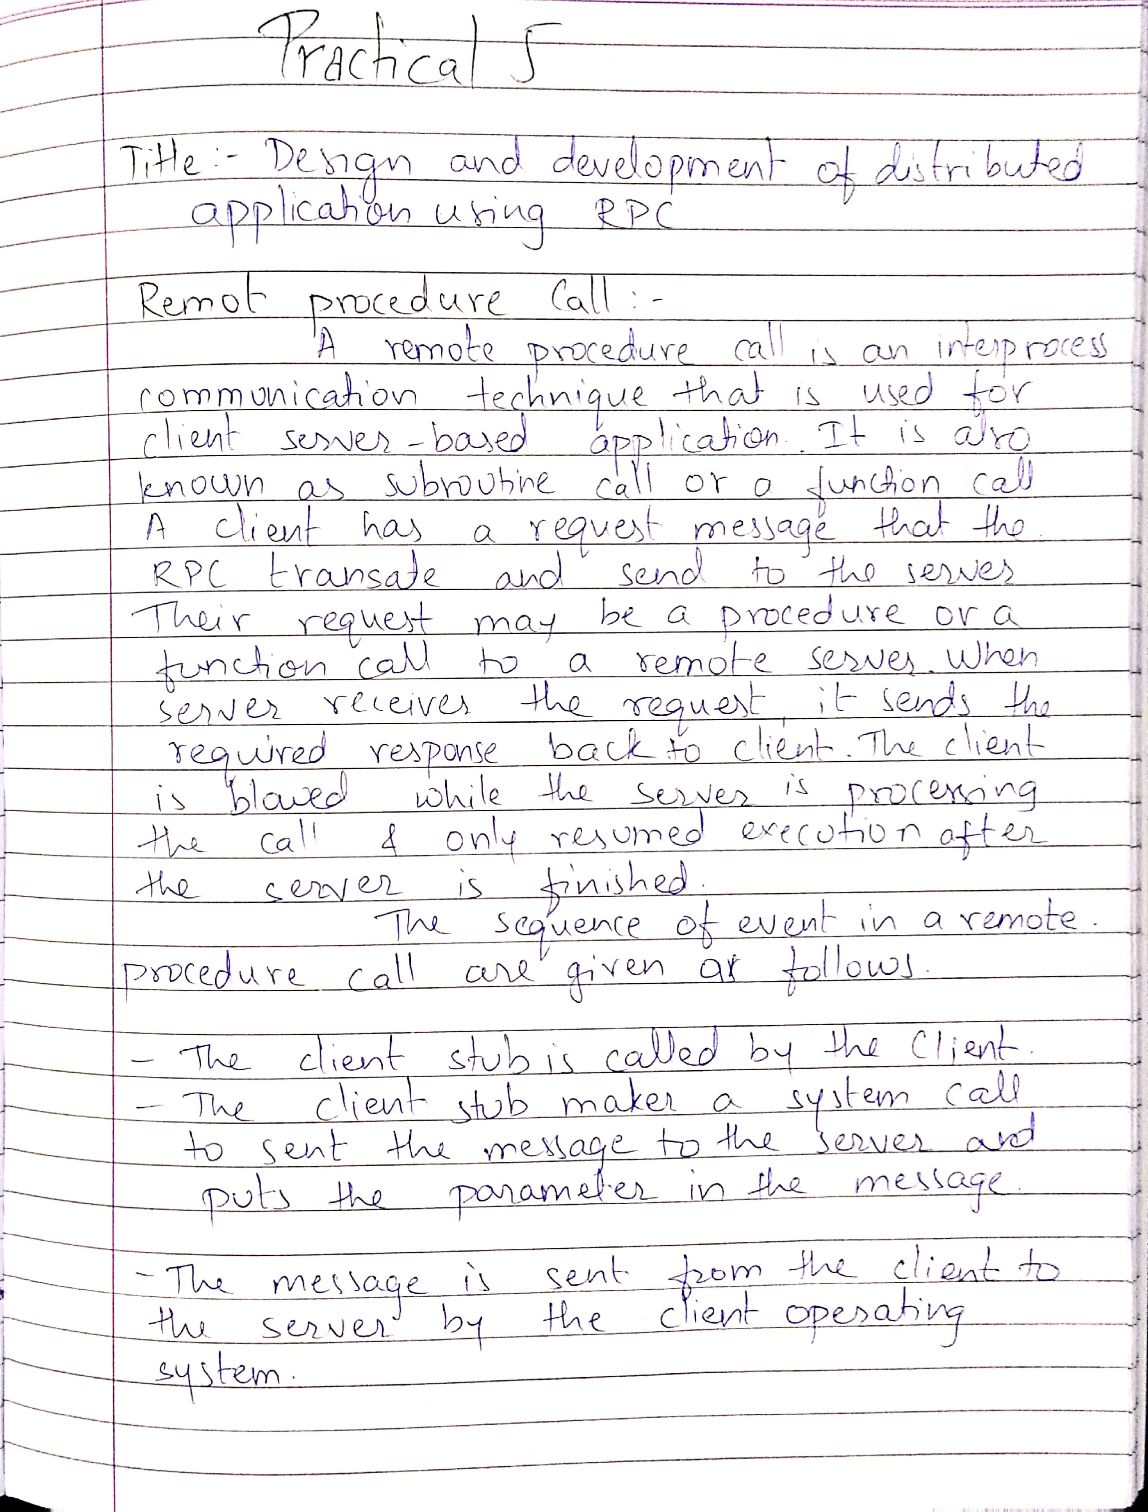 Practical 5
Title :- Design and development of distributed
application using RPC
Remot procedure Call :-
A remote procedure call is an interprocess
communication technique that is used for
client server-based application. It is also
known as subroutine call or a function call
A client has a request message that the
RPC transate and send to the server
Their request may be a procedure or a
function call to a remote server. When
server receives the request, it sends the
required response back to client. The client
is blowed while the server is processing
the call & only resumed execution after
the server is finished.
The sequence of event in a remote.
procedure call are given as follows.
- The client stub is called by the Client.
- The client stub makes a system call
to sent the message to the server and
puts the parameter in the message.
- The message is sent from the client to
the server by the client operating
system.